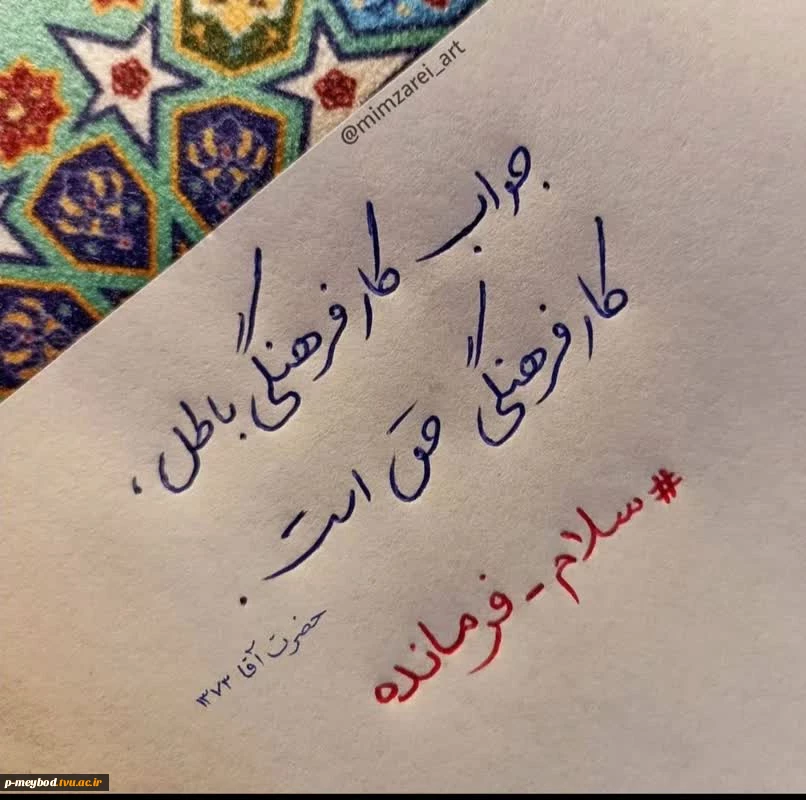 @mimzarei_art
جواب کار فرهنگی باطل،
کار فرهنگی حق است.
حضرت آقا ۱۳۷۳
#سلام_فرمانده
p-meybod.tvu.ac.ir